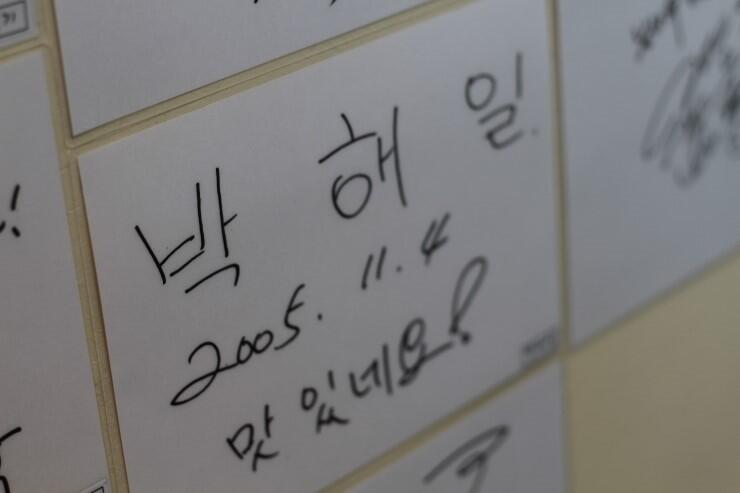 박 해 일.
2005. 11. 4
맛 있네요!